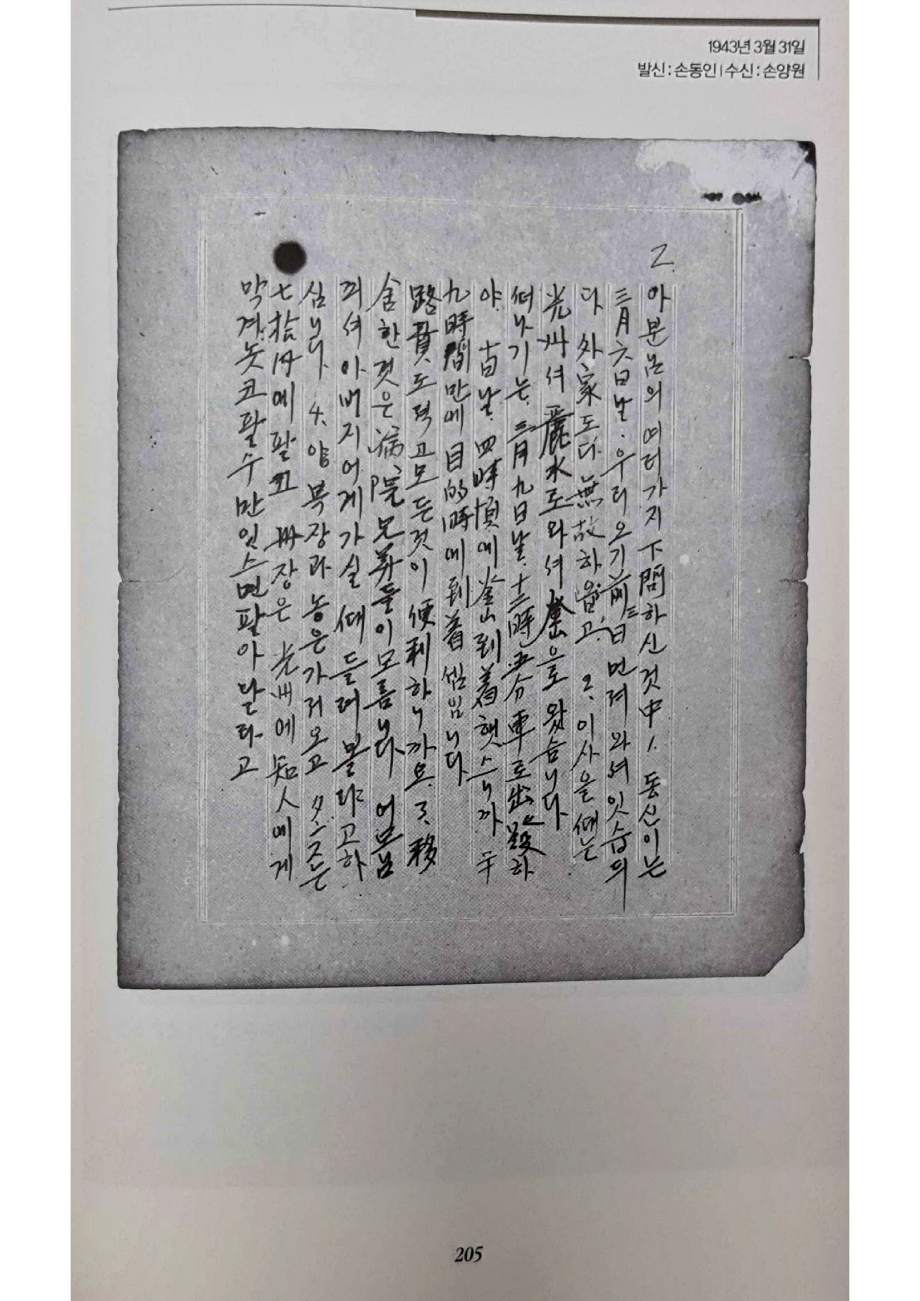 1943년 3월 31일
발신 : 손동인 | 수신 : 손양원
2.
아분님의 여러가지 下問하신것中 1. 동신이는
三月六日날. 우리오기前 三日 먼저 와서 잇슴니
다. 外家도다 無故하옵고. 2. 이사을때는
光州서 麗水도와서 釜山으로 왔슴니다
떠나기는 三月九日날. 十二時 五分車로出發하
야. 十日날. 四時頃에 釜山到着햇스니까
九時間만에 目的時에 到着 셈임니다
路費도적고모든것이 便利하니까요. 3, 移
舍한것은 病院兄弟들이모름니다 어머님
끠셔아버지어게가실 때 들려볼라고하
심니다. 4. 양복장과 농은가저오고 タンス는
七拾円에팔고 冊장은 光州에知人에게
막겨놋코팔수만잇스면팔아달라고
205